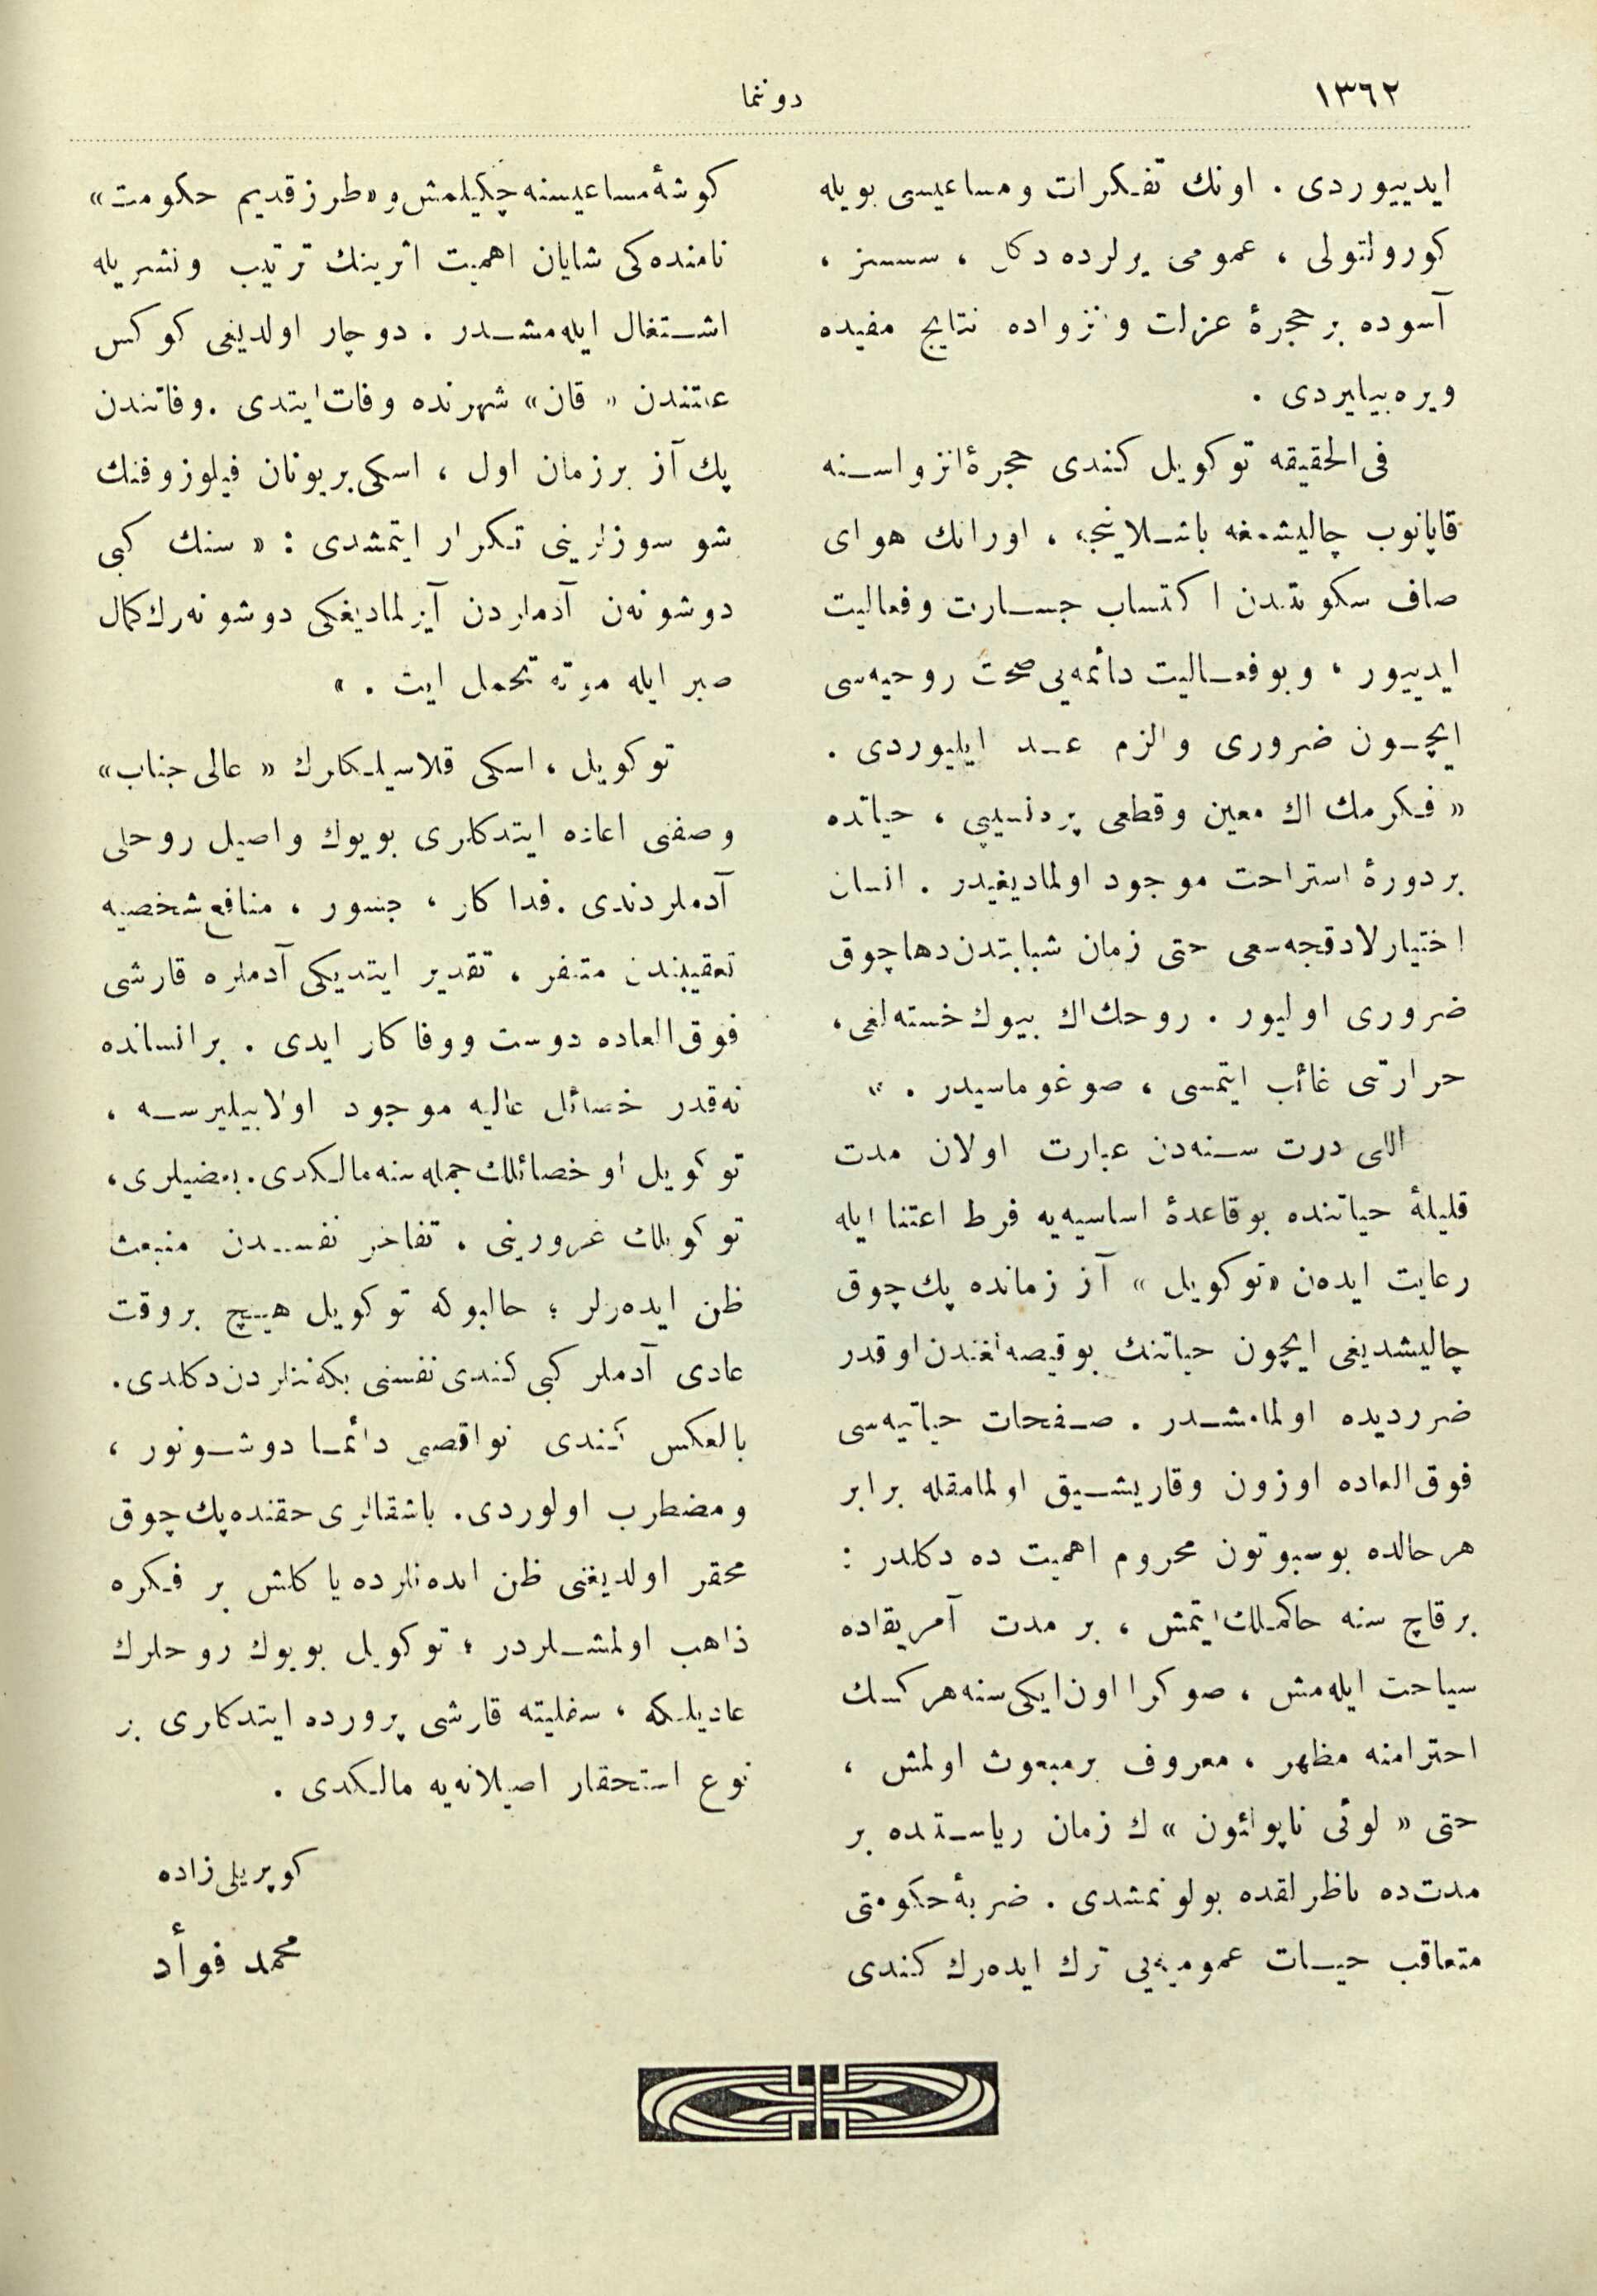 ١٣٦٢
دوننما
ايدييوردى . اونك تفكرات ومساعيسى بويله
كورولتولى ، عمومى يرلرده دكل ، سسسز ،
آسوده بر حجرهٔ عزلت وانزواده نتايج مفيده
ويره بيليردى .
فى الحقيقه توكويل كندى حجرهٔ انزواسنه
قاپانوب چاليشمغه باشلاينجه ، اورانك هواى
صاف سكوتندن اكتساب جسارت وفعاليت
ايدييور ، وبوفعاليت دائمه يى صحت روحيه سى
ايچون ضرورى والزم عد ايليوردى .
« فكرمك اك معين وقطعى پرنسيپى ، حياتده
بر دورهٔ استراحت موجود اولماديغيدر . انسان
اختيارلادقجه سعى حتى زمان شبابتدن دها چوق
ضرورى اوليور . روحك اك بيوك خسته لغى ،
حرارتى غائب ايتمسى ، صوغوماسيدر . »
اللى درت سنه دن عبارت اولان مدت
قليلهٔ حياتنده بوقاعدهٔ اساسيه يه فرط اعتنا ايله
رعايت ايدەن « توكويل » آز زمانده پك چوق
چاليشديغى ايچون حياتنك بوقيصه لغندن اوقدر
ضررديده اولمامشدر . صفحات حياتيه سى
فوق العاده اوزون وقاريشيق اولمامقله برابر
هر حالده بوسبوتون محروم اهميت ده دكلدر :
بر قاچ سنه حاكملك ايتمش ، بر مدت آمريقاده
سياحت ايله مش ، صوكرا اون ايكى سنه هركسك
احترامنه مظهر ، معروف بر مبعوث اولمش ،
حتى « لوئى ناپولئون » ك زمان رياستنده بر
مدت ده ناظرلقده بولونمشدى . ضربهٔ حكومتى
متعاقب حيات عموميه يى ترك ايده رك كندى
كوشهٔ مساعيسنه چكيلمش و « طرز قديم حكومت »
نامنده كى شايان اهميت اثرينك ترتيب ونشريله
اشتغال ايله مشدر . دوچار اولديغى كوكس
علتندن « قان » شهرنده وفات ايتدى . وفاتندن
پك آز بر زمان اول ، اسكى بر يونان فيلوزوفنك
شو سوزلرينى تكرار ايتمشدى : « سنك كبى
دوشونەن آدملردن آيرلماديغكى دوشونەرك كمال
صبر ايله موته تحمل ايت . »
توكويل ، اسكى قلاسيكلرك « عالى جناب »
وصفنى اعاده ايتدكلرى بويوك واصيل روحلى
آدملردندى . فداكار ، جسور ، منافع شخصيه
تعقيبندن متنفر ، تقدير ايتديكى آدملره قارشى
فوق العاده دوست ووفاكار ايدى . بر انسانده
نه قدر خصائل عاليه موجود اولابيليرسه ،
توكويل او خصائلك جمله سنه مالكدى . بعضيلرى ،
توكويلك غرورينى ، تفاخر نفسدن منبعث
ظن ايدەرلر ؛ حالبوكه توكويل هيچ بر وقت
عادى آدملر كبى كندى نفسنى بكەنن‌لردن دكلدى .
بالعكس كندى نواقصى دائما دوشونور ،
ومضطرب اولوردى . باشقالرى حقنده پك چوق
محقر اولديغنى ظن ايدەنلرده ياكلش بر فكره
ذاهب اولمشلردر ؛ توكويل بويوك روحلرك
عاديلكه ، سفليته قارشى پرورده ايتدكلرى بر
نوع استحقار اصيلانه يه مالكدى .
كوپريلى زاده
محمد فوأد